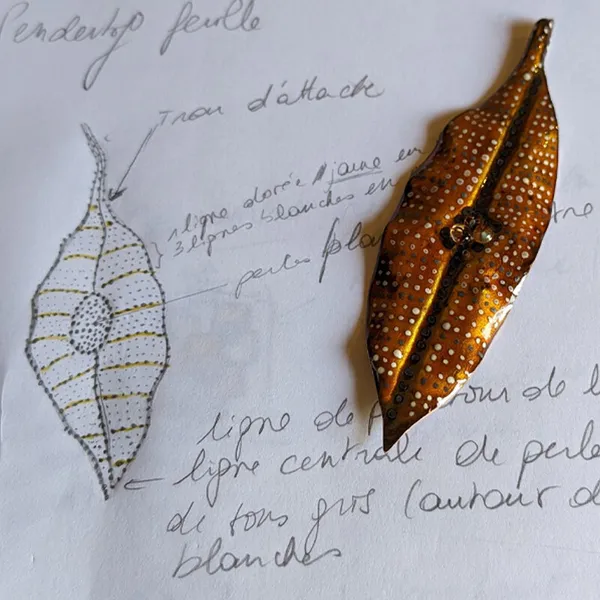 feuille
Trou d'attache
1 ligne dorée/jaune en
3 lignes blanches en
perles blan
ligne de tour de l
ligne centrale de perle
de tons gris (autour d
blanches